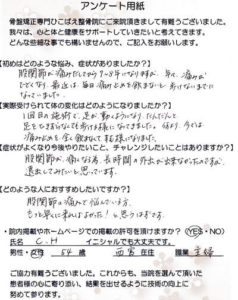 アンケート用紙
骨盤矯正専門ひこばえ整骨院にご来院頂きまして有難うございました。
我々は、心と体と健康をサポートしていきたいと考えてきます。
どんな些細な事でも構いませんので、ご記入をお願いします。
【初めはどのような悩み、症状がありましたか?】
股関節が痛みだしてから7〜8年になりますが、年々、痛みが
ひどくなり、最近は毎日痛み止めを飲まないと歩けないまでに
なっていました。
【実際受けられて体の変化はどのようになりましたか?】
1回目の施術で、足が動くようになり、だんだんと
足をひきずらなくても歩ける様になってきました。今では
痛み止めも全く飲まなくてもよい様になりました。
【症状がよくなり今後やりたいこと、チャレンジしたいことはありますか?】
股関節が痛い為、長時間の外出が出来なかったのですが、
遠出してみたいと思っています。
【どのような人におすすめしたいですか?】
股関節の痛みで悩んでいる方、
もっと早くに来ればよかった!と思うはずです。
・院内掲載やホームページでの掲載の許可を頂けますか? (YES・NO)
氏名 C.H イニシャルでも大丈夫です。
男性・女性 54歳 西宮 在住 職業 主婦
ご協力有難うございました。これからも、当院を選んで頂いた
患者様の心に寄り添い、結果を出せるように技術の向上に
努めて参ります。